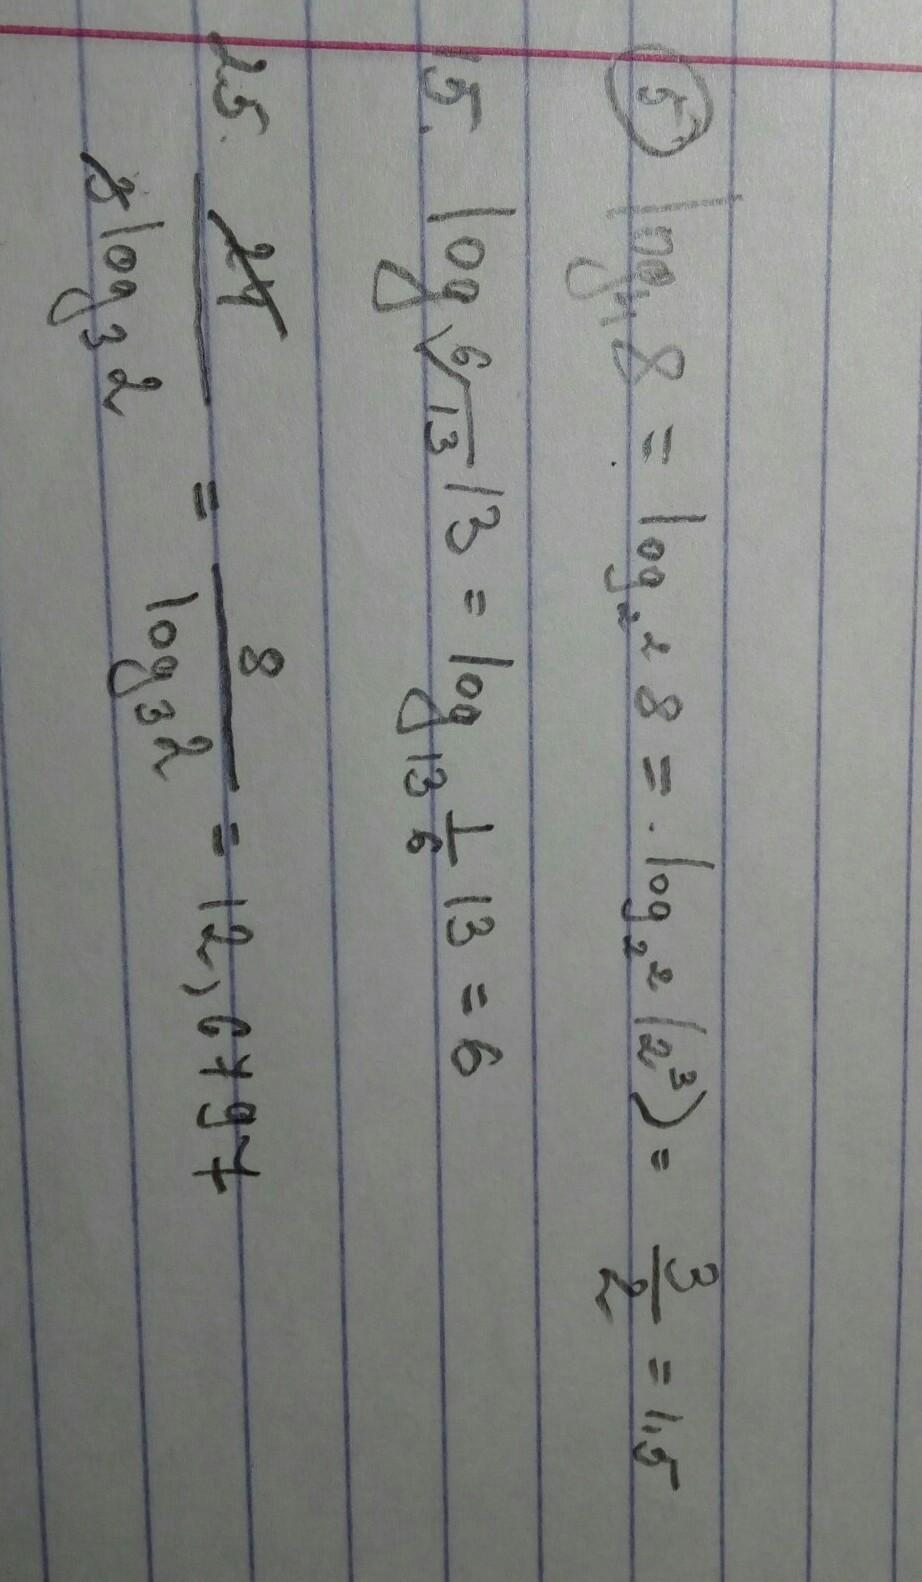 5 log₄ 8 = log₂² 8 = log₂² (2³) = 3/2 = 1,5
15. log ⁶√13 13 = log 13 1/6 13 = 6
25. 24 / 3 log₃ 2 = 8 / log₃ 2 = 12,6797